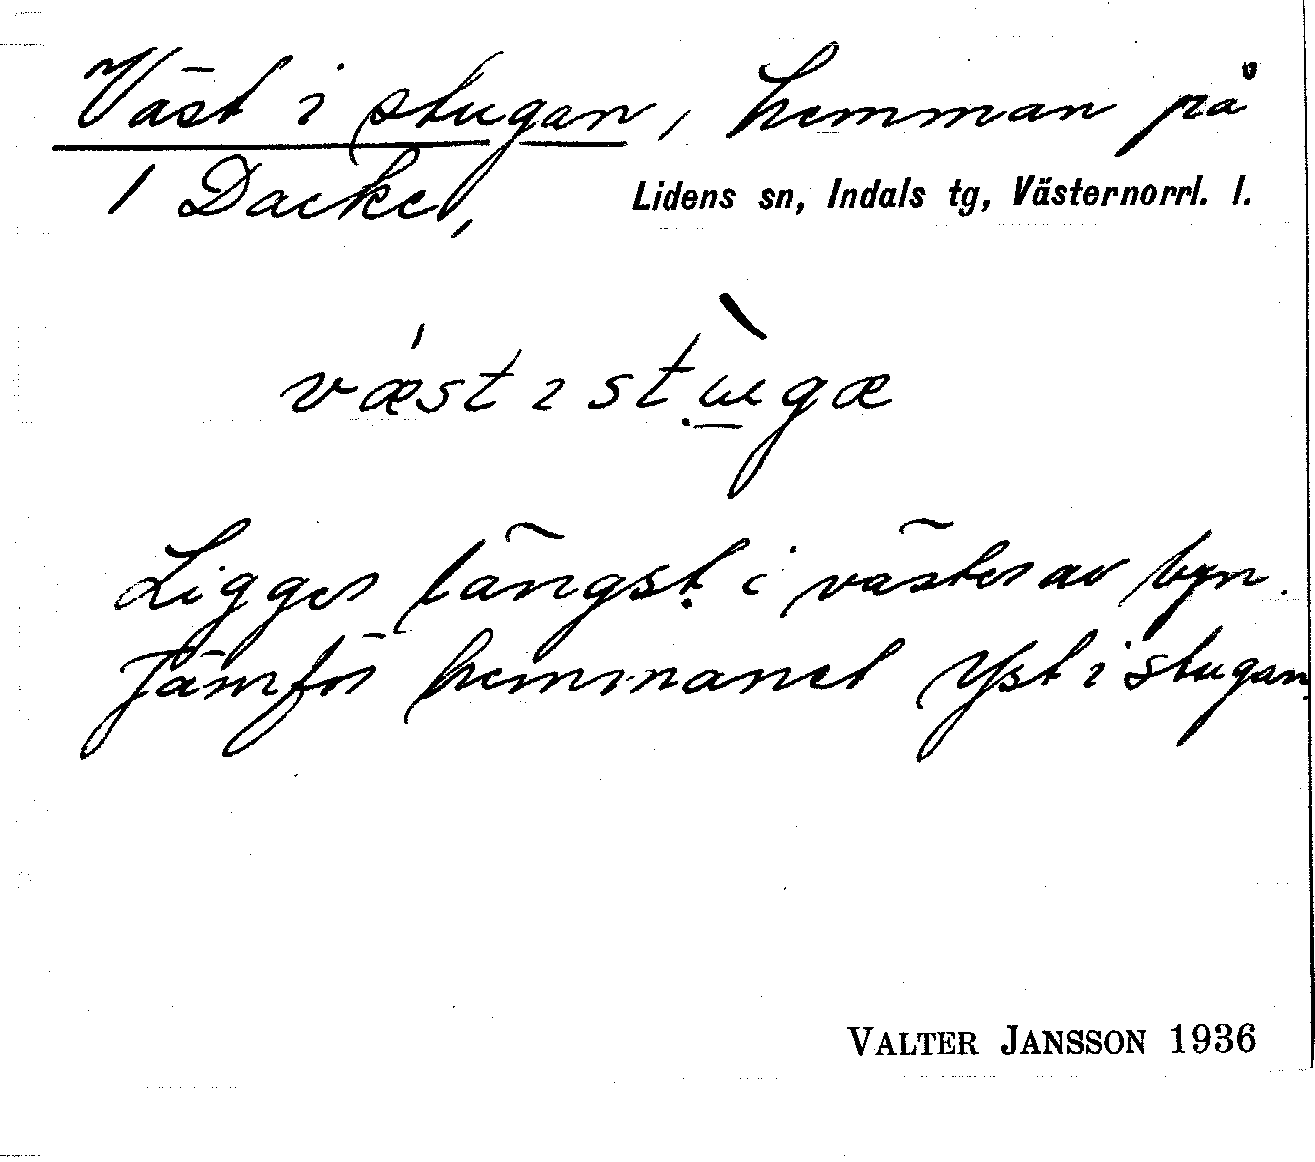 Väst i stugan, hemman på
1 Dacke, Lidens sn, Indals tg, Västernorrl. l.
vǽst ɪ stɯ̀gæ
Ligger längst i väster av byn.
Jämför hemmanet Yst i stugan.
VALTER JANSSON 1936